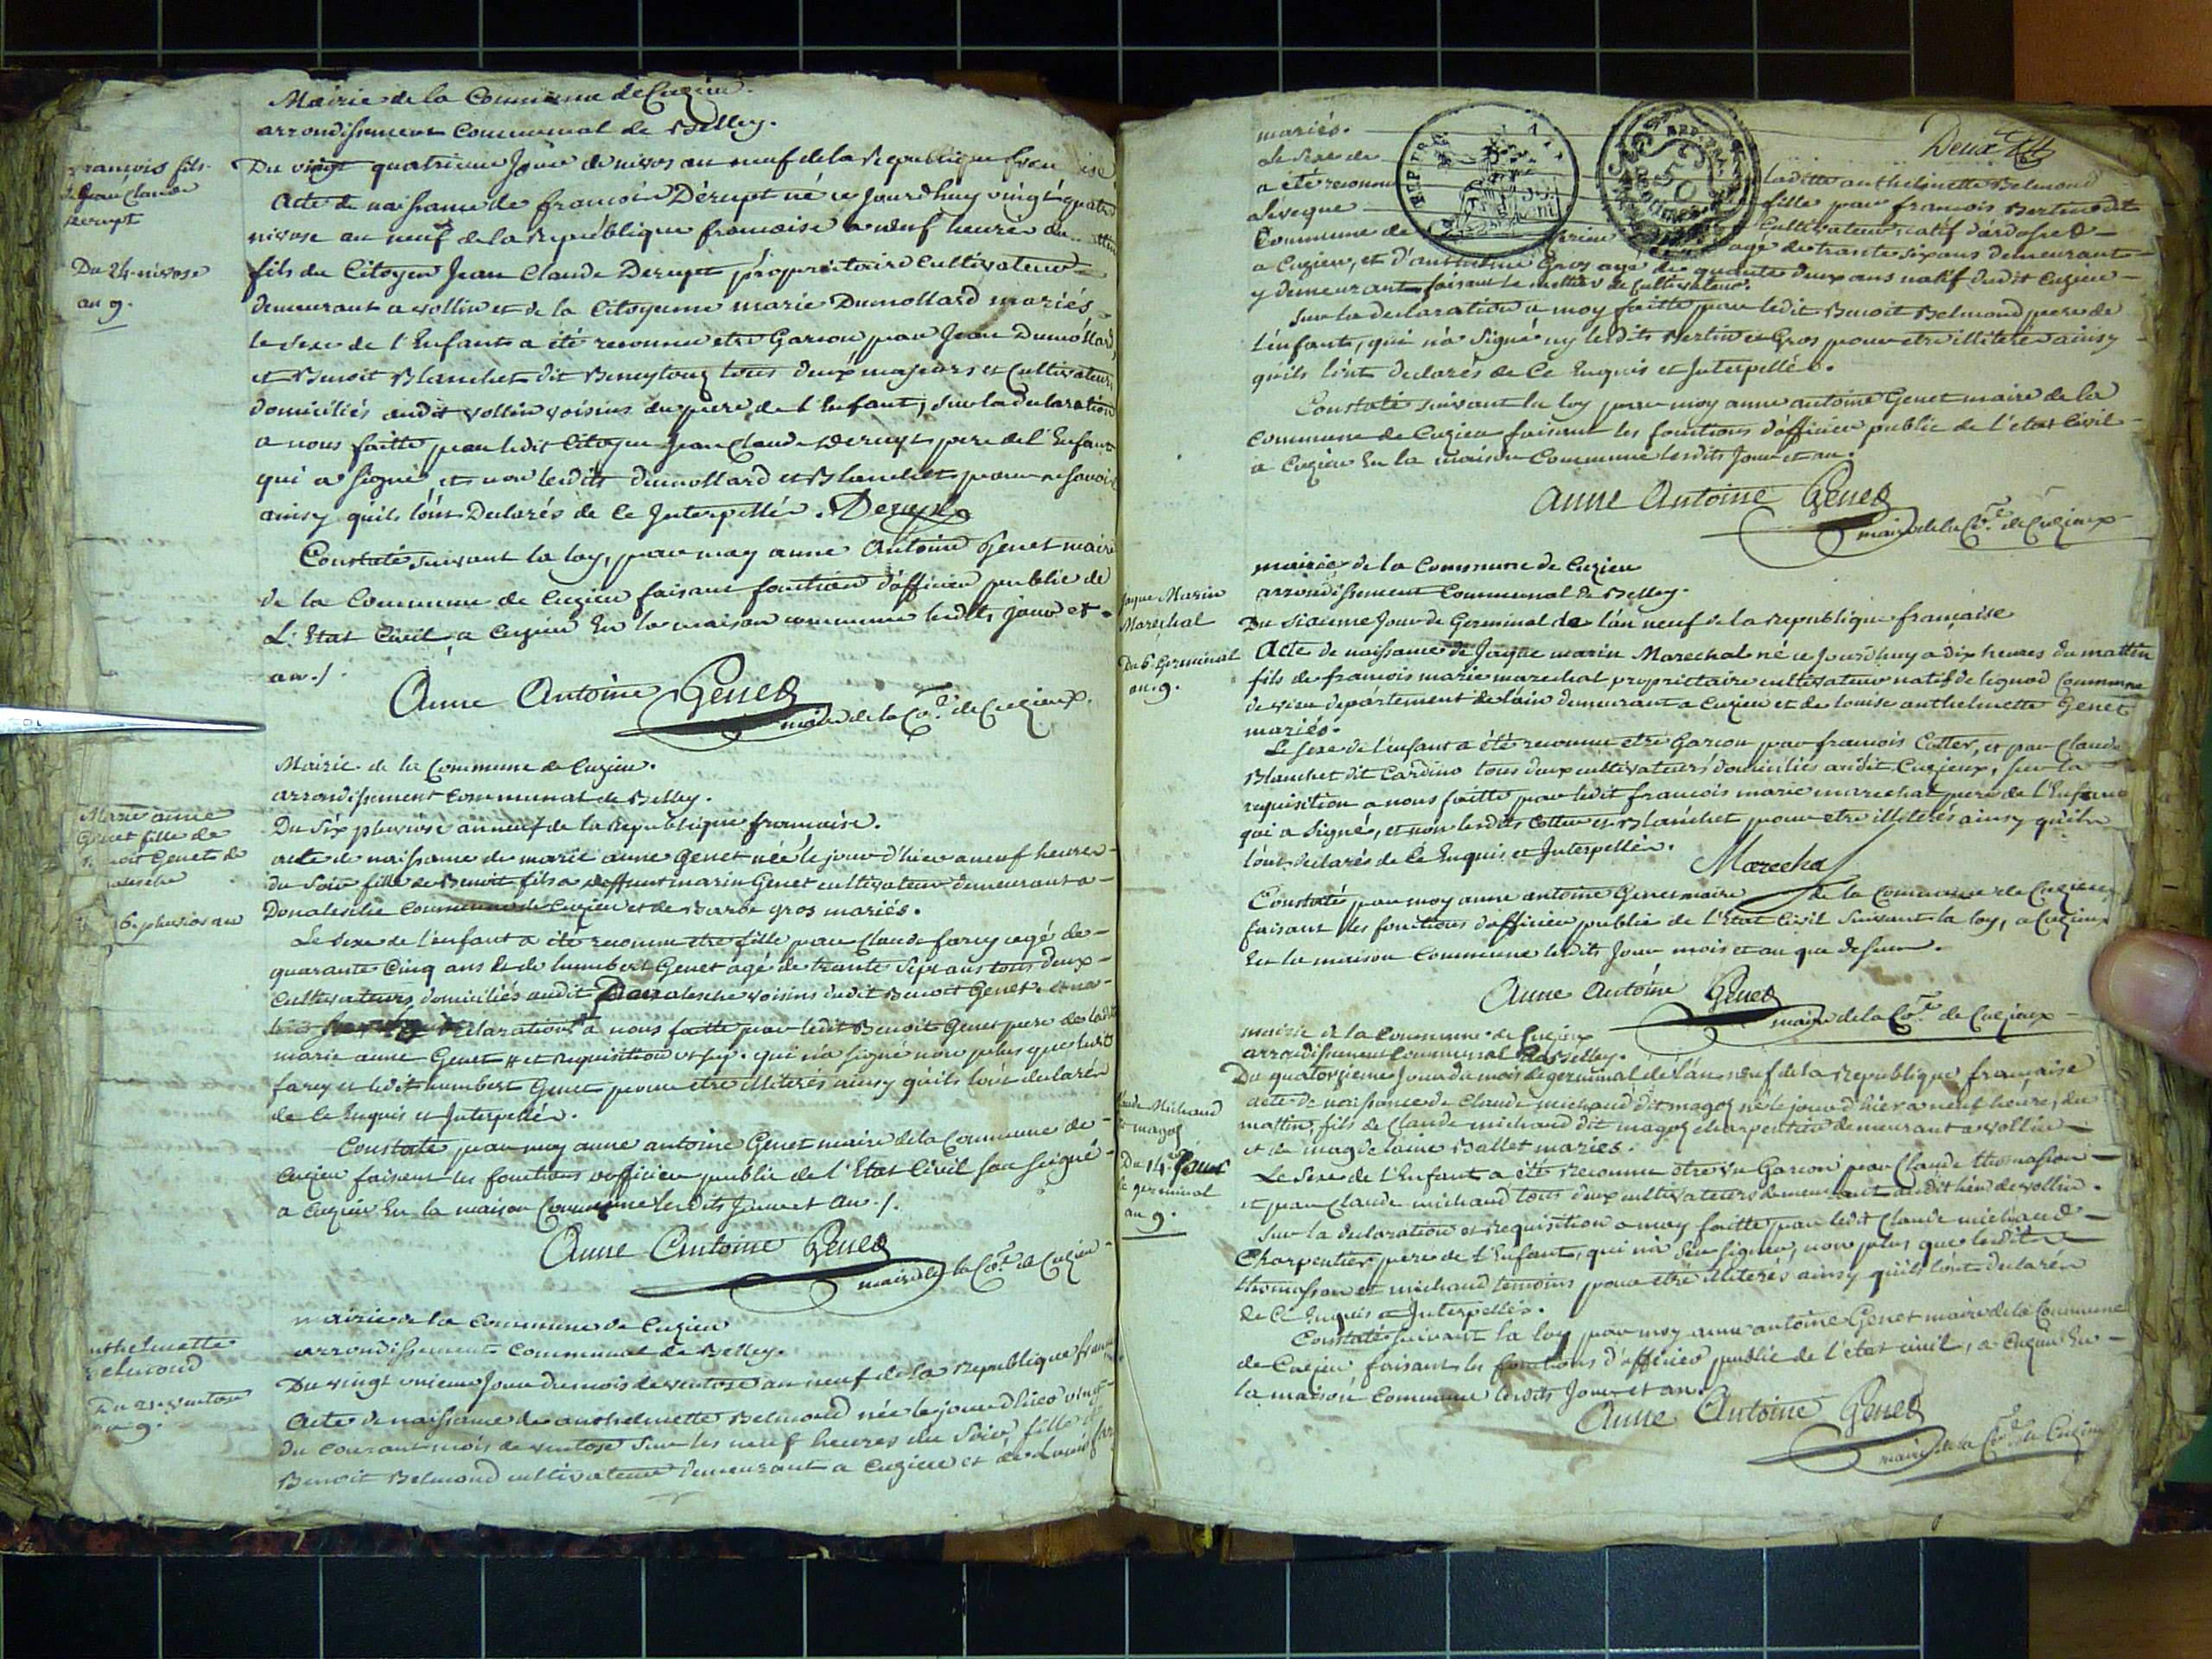 Mairie de la Commune de Cuzieu.
arrondissement Communal de Belley.
rancois fils
de Jean Claude
Derupt
Du 24 nivose
an 9.
Du vingt quatrieme Jour de nivos an neuf de la Republique
Acte de naissance de francois Dérupt né ce Jourdhuy vingt quatre
nivose an neuf de la Republique francoise a neuf heures du
fils du Citoyen Jean Claude Derupt propriétaire Cultivateur
demeurant a vollin et de la Citoyenne marie Dumollard mariés
le sexe de l'Enfant a été reconnu etre Garcon par Jean Dumollard
et Benoit Blanchet dit tous deux majeurs et Cultivateurs
domiciliés audit vollin voisins du pere de l'Enfant, sur la declaration
a nous faitte par ledit Citoyen Jean Claude Derupt pere de l'Enfant
qui a signé et non lesdits dumollard et Blanchet pour ne savoir
ainsy quils lont Declarés de ce Interpellés. Derupt
Constaté suivant la loy, par moy anne Antoine Genet maire
de la Commune de Cuzieu faisant fonction d'officier public de
L'Etat Civil, a Cuzieu En la maison commune lesdits jour et
an ./.
Anne Antoine Genet
maire de la Co.ne de Cuzieux.
Mairie de la Commune de Cuzieu.
arrondissement communal de Belley.
Marie anne
Genet fille de
Genet de
6. pluvios an
Du Six pluviose an neuf de la Republique francoise.
acte de naissance de marie anne Genet née le jour d'hier a neuf heures
du soir fille de Benoit fils a deffunt marin Genet cultivateur demeurant a
Donalesche Commune de Cuzieu et de Barbe gros mariés.
Le sexe de l'enfant a été reconnu etre fille par Claude farcy agé de
quarante Cinq ans et de humbert Genet agé de trante sept ans tous deux
Cultivateurs domiciliés audit Donalesche voisins dudit Benoit Genet.
declaration a nous faitte par ledit Benoit Genet pere de ladite
marie anne Genet et requisition qui n'a signé non plus que ledit
farcy et ledit humbert Genet pour etre illiterés ainsy quils lont declarés
de ce Enquis et Interpellés.
Constaté par moy anne antoine Genet maire de la Commune de
Cuzieu faisant les fonctions d'officier public de l'Etat Civil
a Cuzieu En la maison Commune lesdits Jour et an ./.
Anne Antoine Genet
maire de la Co.ne de Cuzieu
mairie de la Commune de Cuzieu
arrondissement Communal de Belley.
nthelmette
elmond
Du 21 ventose
an 9.
Du vingt unieme Jour du mois de ventose an neuf de la Republique
Acte de naissance de anthelmette Belmond née le jour d'hier vingt
du courant mois de ventose sur les neuf heures du soir, fille de
Benoit Belmond cultivateur demeurant a Cuzieu et de
mariés.
Le sexe de
a été reconnu
Leveque
Commune de
Deux
ladite anthelmette Belmond
fille par francois Bertin dit
Cultivateur natif d'
agé de trante six ans demeurant
a Cuzieu, et d'anthelme Gros agé de quarante deux ans natif dudit Cuzieu
y demeurant faisant le mettier de Cultivateur.
sur la declaration a moy faitte par ledit Benoit Belmond pere de
L'enfant, qui n'a signé ny lesdits Bertin et Gros pour etre illiterés ainsy
quils lont declarés de Ce Enquis et Interpellés.
Constaté suivant la loy par moy anne antoine Genet maire de la
Commune de Cuzieu faisant les fonctions d'officier public de l'état Civil
a Cuzieu En la maison Commune lesdits Jour et an.
Anne Antoine Genet
maire de la Co.ne de Cuzieux
mairie de la Commune de Cuzieu
arrondissement Communal de Belley.
Jaque Marin
Marechal
Du 6 Germinal
an 9.
Du sixieme Jour de Germinal de l'an neuf de la republique francaise
Acte de naissance de Jaque marin Marechal né ce Jourdhuy a dix heures du mattin
fils de francois marie marechal proprietaire cultivateur natif de lignod Commune
de vieu departement de lain demeurant a Cuzieu et de louise anthelmette Genet
mariés.
Le sexe de l'enfant a été reconnu etre Garcon par francois Cotter, et par Claude
Blanchet dit Cardino tous deux cultivateurs domiciliés audit Cuzieux, sur la
requisition a nous faitte par ledit francois marie marechal pere de l'Enfant
qui a signé, et non lesdits Cotter et Blanchet pour etre illiterés ainsy quils
lont declarés de Ce Enquis et Interpellés.
Marechal
Constaté par moy anne antoine Genet maire de la Commune de Cuzieux
faisant les fonctions d'officier public de l'Etat Civil suivant la loy, a Cuzieux
En la maison Commune lesdits Jour mois et an que dessus.
Anne Antoine Genet
maire de la Co.ne de Cuzieux
mairie de la Commune de Cuzieux
arrondissement Communal de Belley.
Claude Michaud
magoz
Du 14 Jour
de germinal
an 9.
Du quatorzieme Jour du mois de germinal de l'an neuf de la Republique francaise
acte de naissance de Claude michaud dit magoz né le jour d'hier a neuf heures du
mattin, fils de Claude michaud dit magoz charpentier demeurant a vollin
et de magdelaine Ballet mariés.
Le sexe de l'Enfant a été reconnu etre un Garcon par Claude thomasson
et par Claude michaud tous deux cultivateurs demeurant audit lieu de vollin.
sur la declaration et requisition a moy faitte par ledit Claude michaud
Charpentier pere de l'Enfant, qui n'a seu signer, non plus que lesdits
thomasson et michaud temoins pour etre illiterés ainsy quils lont declarés
de Ce Enquis et Interpellés.
Constaté suivant la loy par moy anne antoine Genet maire de la Commune
de Cuzieu faisant les fonctions d'officier public de l'état civil, a Cuzieu En
la maison Commune lesdits Jour et an.
Anne Antoine Genet
maire de la Co.ne de Cuzieu